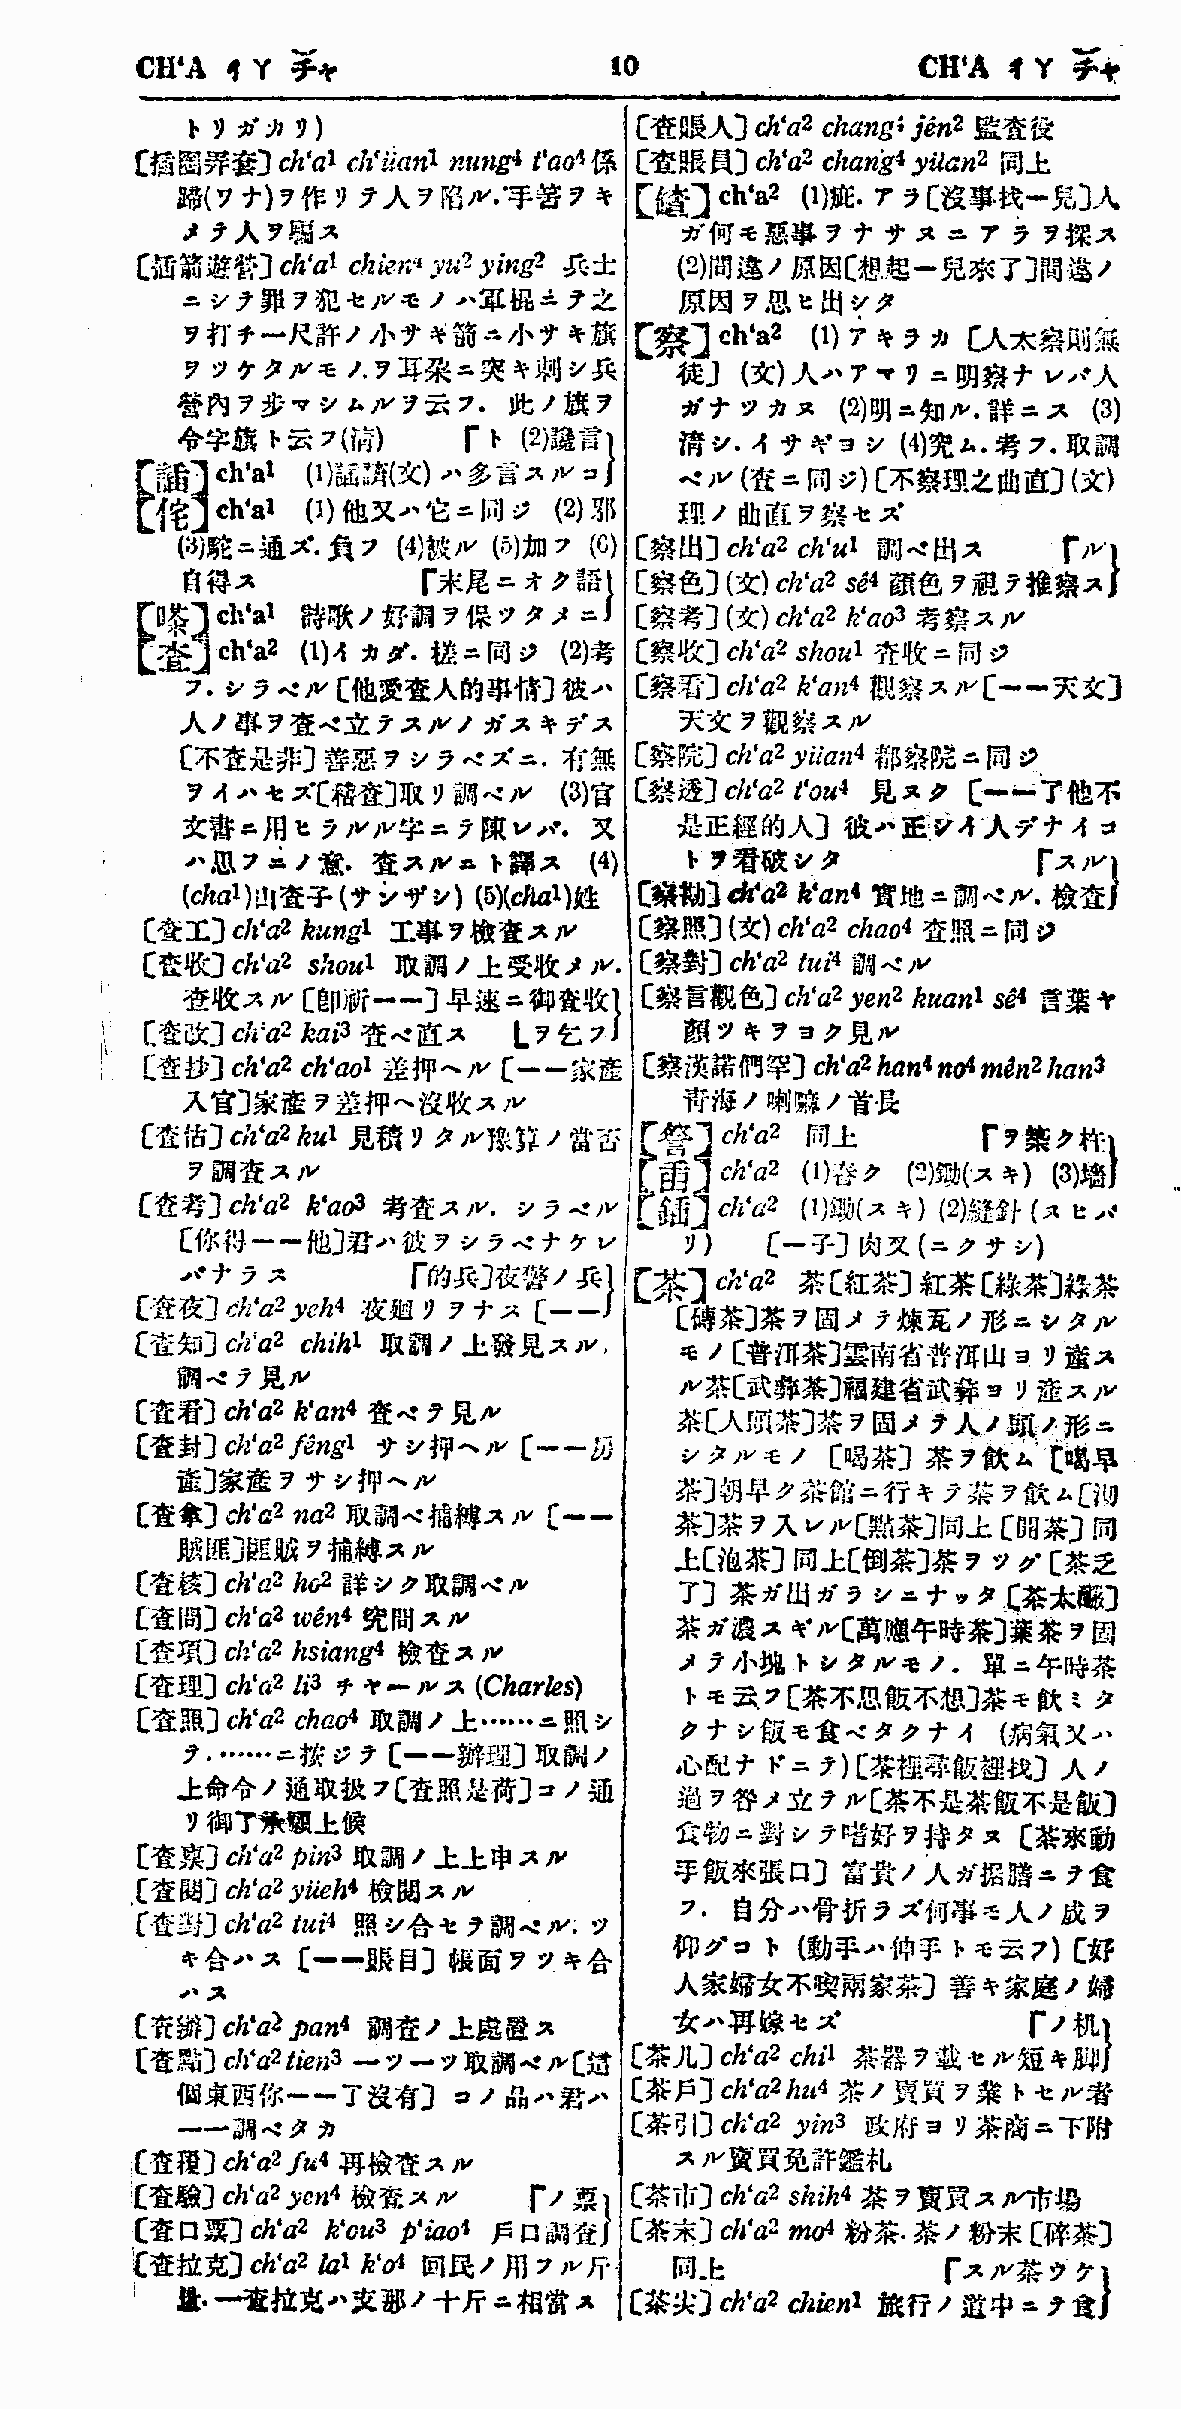 CH‘A ㄔㄚ チャ 10 CH‘A ㄔㄚ チャ
トリガカリ)
[插圈弄套] ch‘a1 ch‘üan1 nung4 t‘ao4 係
蹄(ワナ)ヲ作リテ人ヲ陷ル.手筈ヲキ
メテ人ヲ騙ス
[插箭遊營] ch‘a1 chien4 yu2 ying2 兵士
ニシテ罪ヲ犯セルモノハ軍棍ニテ之
ヲ打チ一尺許ノ小サキ箭ニ小サキ旗
ヲツケタルモノヲ耳朶ニ突キ刺シ兵
營內ヲ步マシムルヲ云フ. 此ノ旗ヲ
令字旗ト云フ(淸) 「ト (2)讒言
【誧】ch‘a1 (1)(文)ハ多言スルコ
【侘】ch‘a1 (1)他又ハ它ニ同ジ (2)邪
(3)駝ニ通ズ.負フ (4)被ル (5)加フ (6)
自得ス 「末尾ニオク語
【嗏】ch‘a1 詩歌ノ好調ヲ保ツタメニ
【査】ch‘a2 (1)イカダ. 槎ニ同ジ (2)考
フ.シラベル[他愛査人的事情]彼ハ
人ノ事ヲ査ベ立テスルノガスキデス
[不査是非]善惡ヲシラベズニ. 有無
ヲイハセズ[稽査]取リ調ベル (3)官
文書ニ用ヒラルル字ニテ陳レバ. 又
ハ思フニノ意. 査スルニト譯ス (4)
(cha1)山査子(サンザシ) (5)(cha1)姓
[査工] ch‘a2 kung1 工事ヲ檢査スル
[査收] ch‘a2 shou1 取調ノ上受收メル.
査收スル[卽祈一一]早速ニ御査收
[査改] ch‘a2 kai3 査ベ直ス 「ヲ乞フ
[査抄] ch‘a2 ch‘ao1 差押ヘル[一一家產
入官]家產ヲ差押ヘ沒收スル
[査估] ch‘a2 ku1 見積リタル豫算ノ當否
ヲ調査スル
[査考] ch‘a2 k‘ao3 考査スル. シラベル
[你得一一他]君ハ彼ヲシラベナケレ
バナラス 「的兵]夜警ノ兵
[査夜] ch‘a2 yeh4 夜廻リヲナス[一一
[査知] ch‘a2 chih1 取調ノ上發見スル.
調ベテ見ル
[査看] ch‘a2 k‘an4 査ベテ見ル
[査封] ch‘a2 fêng1 サシ押ヘル[一一房
產]家產ヲサシ押ヘル
[査拿] ch‘a2 na2 取調ベ捕縛スル[一一
賊匪]匪賊ヲ捕縛スル
[査核] ch‘a2 ho2 詳シク取調ベル
[査問] ch‘a2 wên4 究問スル
[査項] ch‘a2 hsiang4 檢査スル
[査理] ch‘a2 li3 チャールス (Charles)
[査照] ch‘a2 chao4 取調ノ上……ニ照シ
テ.……ニ按ジテ[一一辦理]取調ノ
上命令ノ通取扱フ[査照是荷]コノ通
リ御了承願上候
[査稟] ch‘a2 pin3 取調ノ上上申スル
[査閱] ch‘a2 yüeh4 檢閱スル
[査對] ch‘a2 tui4 照シ合セテ調ベル. ツ
キ合ハス[一一賬目]帳面ヲツキ合
ハス
[査辦] ch‘a2 pan4 調査ノ上處置ス
[査點] ch‘a2 tien3 一ツ一ツ取調ベル[這
個東西你一一了沒有] コノ品ハ君ハ
一一調ベタカ
[査覆] ch‘a2 fu4 再檢査スル
[査驗] ch‘a2 yen4 檢査スル 「ノ票
[査口票] ch‘a2 k‘ou3 p‘iao4 戶口調査
[査拉克] ch‘a2 la1 k‘o4 回民ノ用フル斤
量.一査拉克ハ支那ノ十斤ニ相當ス
[査賬人] ch‘a2 chang4 jên2 監査役
[査賬員] ch‘a2 chang4 yüan2 同上
【䅊】ch‘a2 (1)疵.アラ[沒事找一兒]人
ガ何モ惡事ヲナサヌニアラヲ探ス
(2)間違ノ原因[想起一兒來了]間違ノ
原因ヲ思ヒ出シタ
【察】ch‘a2 (1)アキラカ [人太察則無
徒] (文)人ハアマリニ明察ナレバ人
ガナツカヌ (2)明ニ知ル.詳ニス (3)
淸シ.イサギヨシ (4)究ム.考フ.取調
ベル(査ニ同ジ)[不察理之曲直](文)
理ノ曲直ヲ察セズ
[察出] ch‘a2 ch‘u1 調ベ出ス 「ル
[察色](文) ch‘a2 sê4 顏色ヲ視テ推察ス
[察考](文) ch‘a2 k‘ao3 考察スル
[察收] ch‘a2 shou1 査收ニ同ジ
[察看] ch‘a2 k‘an4 觀察スル[一一天文]
天文ヲ觀察スル
[察院] ch‘a2 yüan4 都察院ニ同ジ
[察透] ch‘a2 t‘ou4 見ヌク [一一了他不
是正經的人]彼ハ正シイ人デナイコ
トヲ看破シタ 「スル
[察勘] ch‘a2 k‘an4 實地ニ調ベル. 檢査
[察照](文) ch‘a2 chao4 査照ニ同ジ
[察對] ch‘a2 tui4 調ベル
[察言觀色] ch‘a2 yen2 kuan1 sê4 言葉ヤ
顏ツキヲヨク見ル
[察漢諾們罕] ch‘a2 han4 no4 mên2 han3
靑海ノ喇嘛ノ首長
【詧】ch‘a2 同上 「ヲ築ク杵
【臿】ch‘a2 (1)舂ク (2)鋤(スキ) (3)墻
【鍤】ch‘a2 (1)鋤(スキ) (2)縫針(スヒバ
リ) [一子]肉叉(ニクサシ)
【茶】ch‘a2 茶[紅茶]紅茶[綠茶]綠茶
[磚茶]茶ヲ固メテ煉瓦ノ形ニシタル
モノ[普洱茶]雲南省普洱山ヨリ產ス
ル茶[武彝茶]福建省武彝ヨリ產スル
茶[人頭茶]茶ヲ固メテ人ノ頭ノ形ニ
シタルモノ [喝茶]茶ヲ飮ム [喝早
茶]朝早ク茶館ニ行キテ茶ヲ飮ム[沏
茶]茶ヲ入レル[點茶]同上[開茶]同
上[泡茶]同上[倒茶]茶ヲツグ[茶乏
了] 茶ガ出ガラシニナッタ[茶太釅]
茶ガ濃スギル[萬應午時茶]葉茶ヲ固
メテ小塊トシタルモノ. 單ニ午時茶
トモ云フ[茶不思飯不想]茶モ飮ミタ
クナシ飯モ食ベタクナイ (病氣又ハ
心配ナドニテ)[茶裡尋飯裡找] 人ノ
過ヲ咎メ立テル[茶不是茶飯不是飯]
食物ニ對シテ嗜好ヲ持タヌ [茶來動
手飯來張口] 富貴ノ人ガ据膳ニテ食
フ. 自分ハ骨折ラズ何事モ人ノ成ヲ
仰グコト (動手ハ伸手トモ云フ)[好
人家婦女不喫兩家茶]善キ家庭ノ婦
女ハ再嫁セズ 「ノ机
[茶几] ch‘a2 chi1 茶器ヲ載セル短キ脚
[茶戶] ch‘a2 hu4 茶ノ賣買ヲ業トセル者
[茶引] ch‘a2 yin3 政府ヨリ茶商ニ下附
スル賣買免許鑑札
[茶市] ch‘a2 shih4 茶ヲ賣買スル市場
[茶末] ch‘a2 mo4 粉茶.茶ノ粉末[碎茶]
同上 「スル茶ウケ
[茶尖] ch‘a2 chien1 旅行ノ道中ニテ食